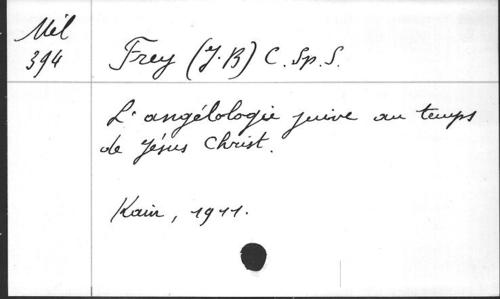 Mél
394
Frey (J.B) C.Sp.S.
L'angélologie juive au temps
de Jésus Christ.
Kain, 1911.